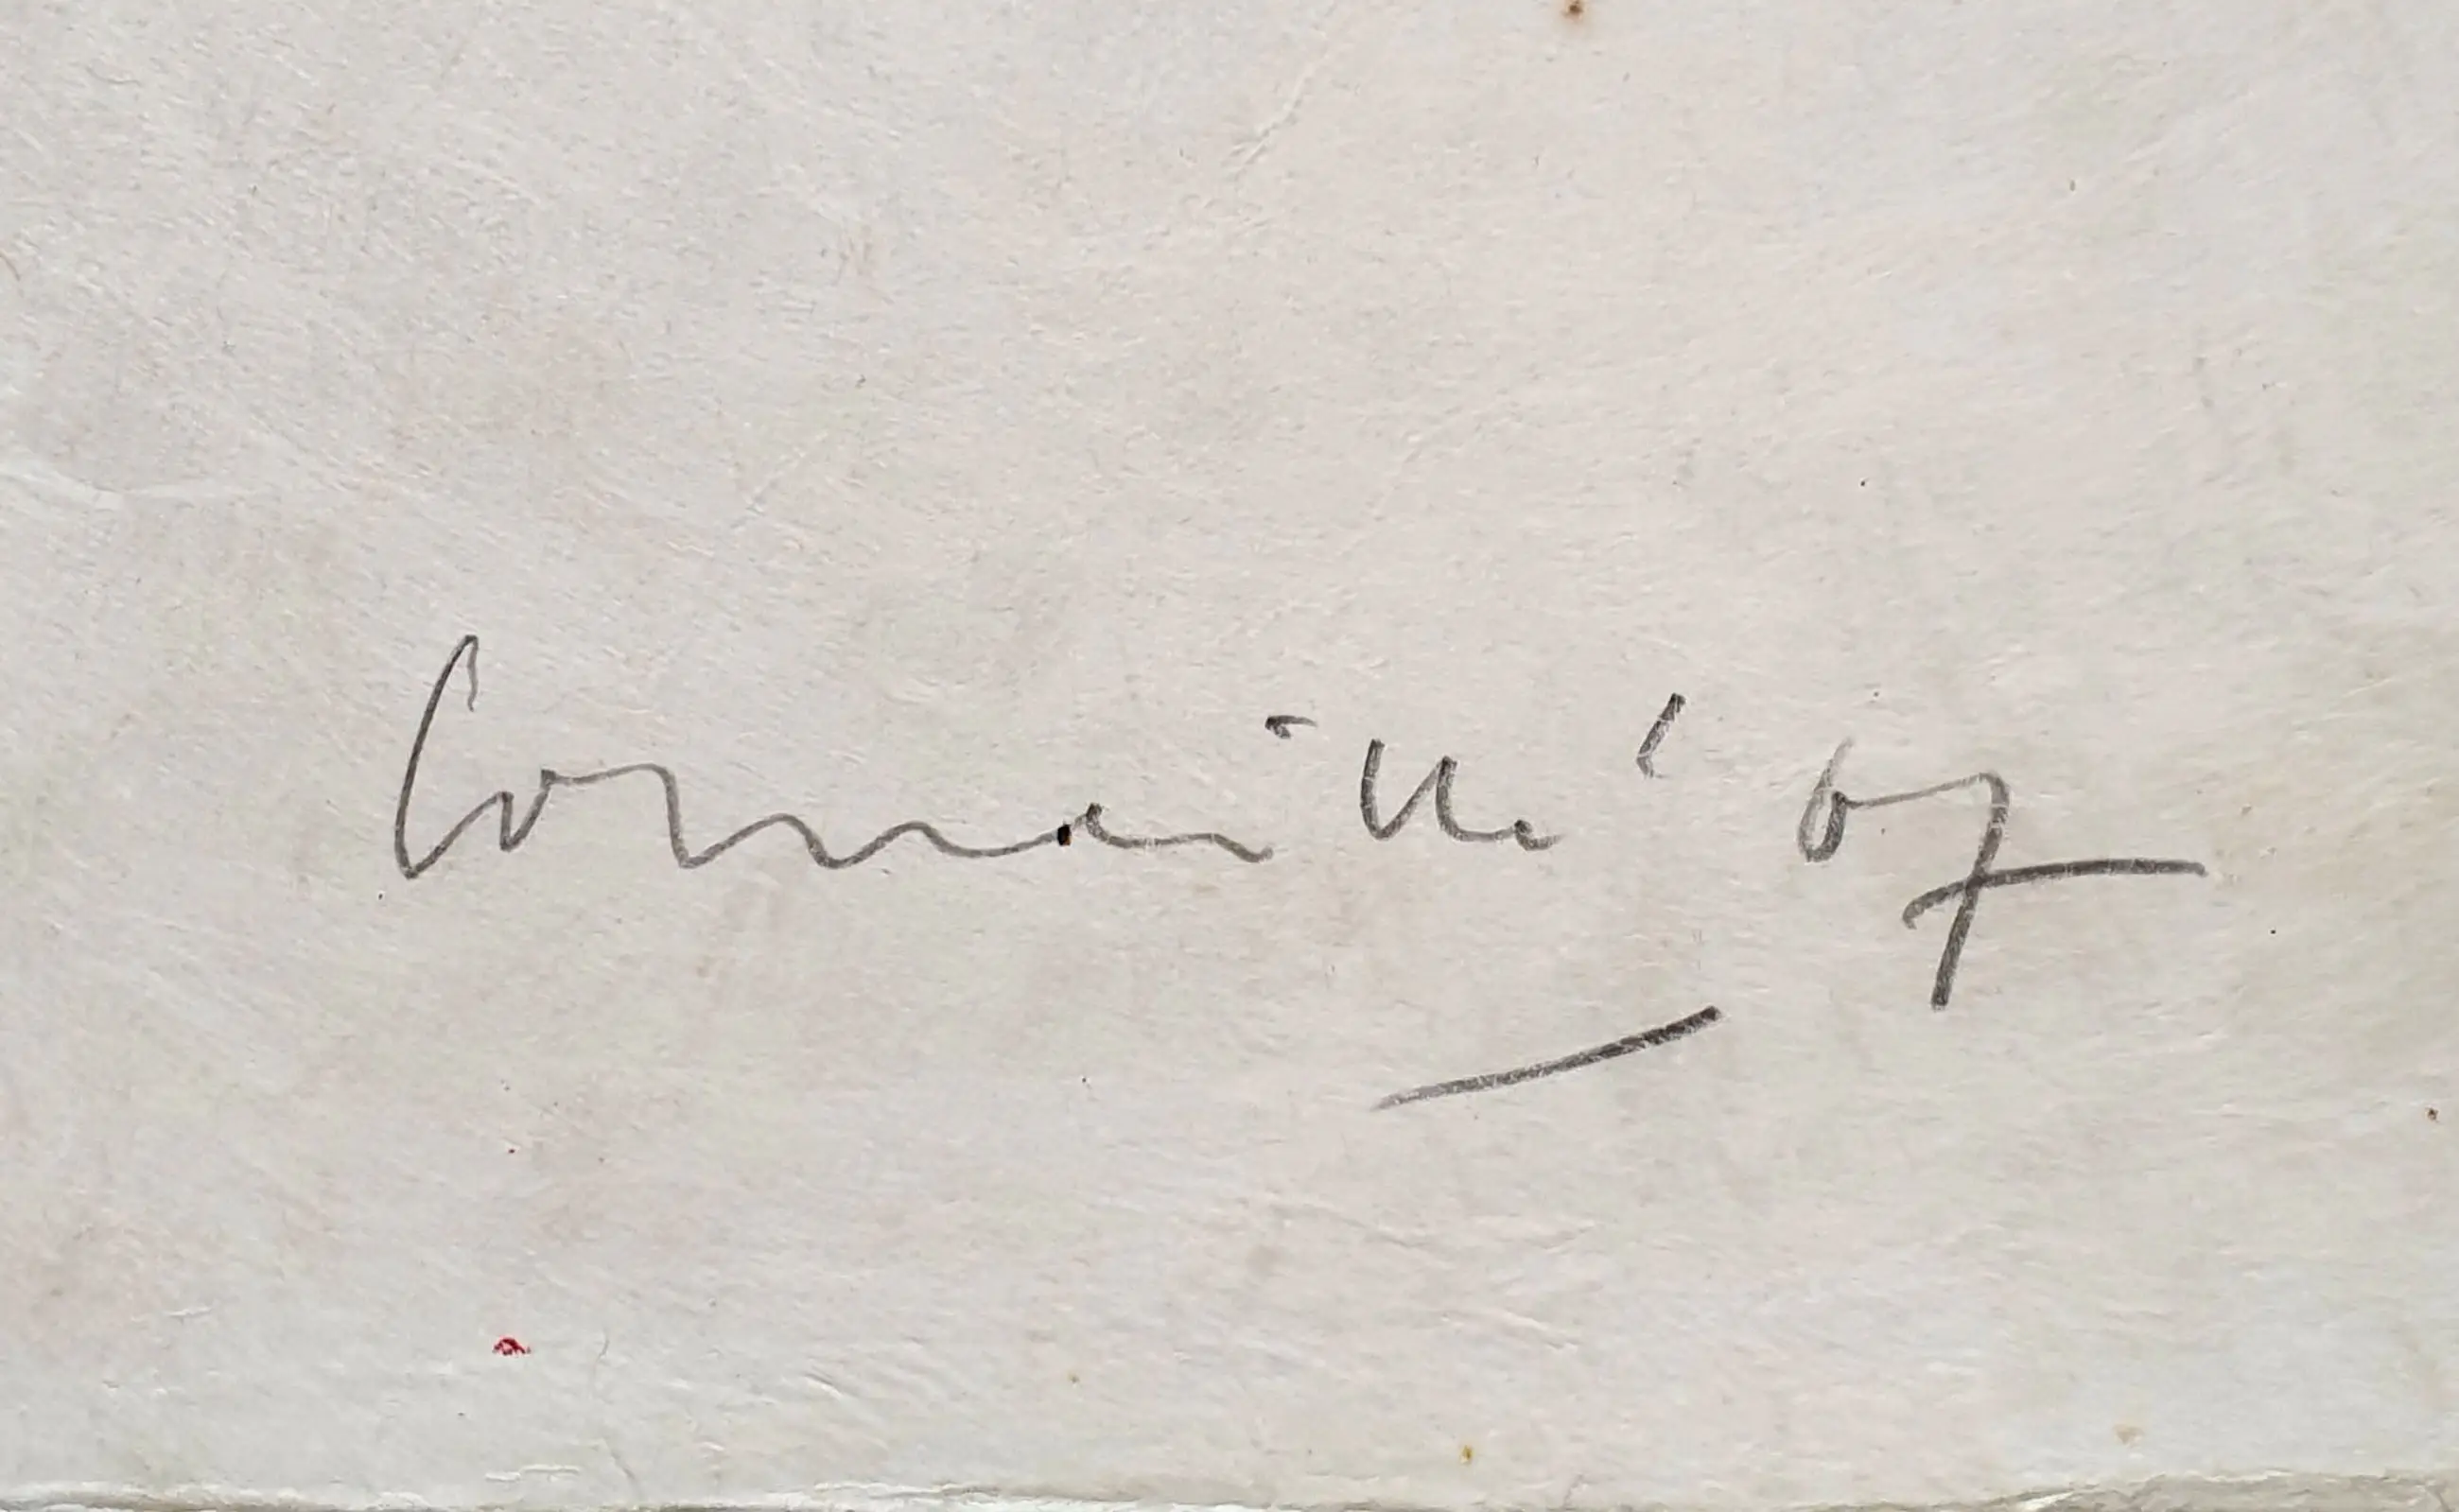 Corneille '67